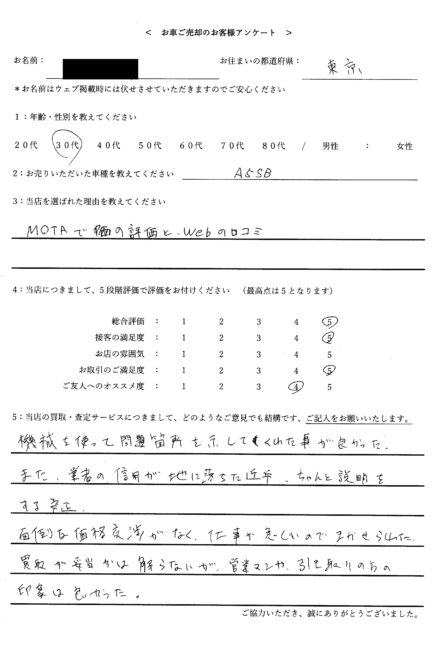 ＜　お車ご売却のお客様アンケート　＞
お名前：　お住まいの都道府県：　東京
＊お名前はウェブ掲載時には伏せさせていただきますのでご安心ください
1：年齢・性別を教えてください
20代　30代　40代　50代　60代　70代　80代　/　男性　：　女性
2：お売りいただいた車種を教えてください　A5SB
3：当店を選ばれた理由を教えてください
MOTAで の評価と、Webの口コミ
4：当店につきまして、5段階評価で評価をお付けください　（最高点は5となります）
総合評価　：　1　2　3　4　5
接客の満足度　：　1　2　3　4　5
お店の雰囲気　：　1　2　3　4　5
お取引のご満足度　：　1　2　3　4　5
ご友人へのオススメ度　：　1　2　3　4　5
5：当店の買取・査定サービスにつきまして、どのようなご意見でも結構です、ご記入をお願いいたします。
機械を使って問題箇所を示してくれた事が良かった。
また、業者の信用が地に落ちた近年、ちゃんと説明を
する
面倒な価格交渉がなく、仕事が忙しいのでまかせられた。
買取が妥当かは解らないが、営業マンや、引き取りの方の
印象は良かった。
ご協力いただき、誠にありがとうございました。